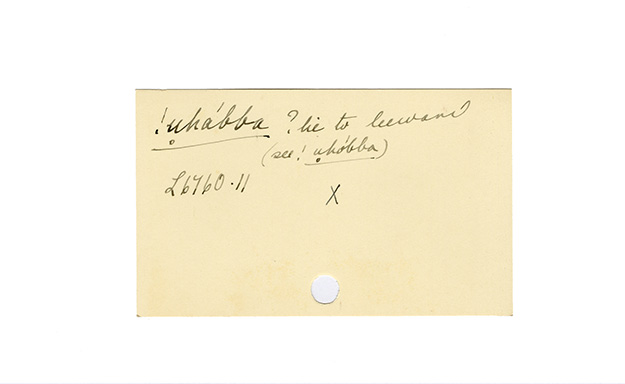 !ụhábba ? lie to leeward
(see ! ụhóbba)
L6760.11
X